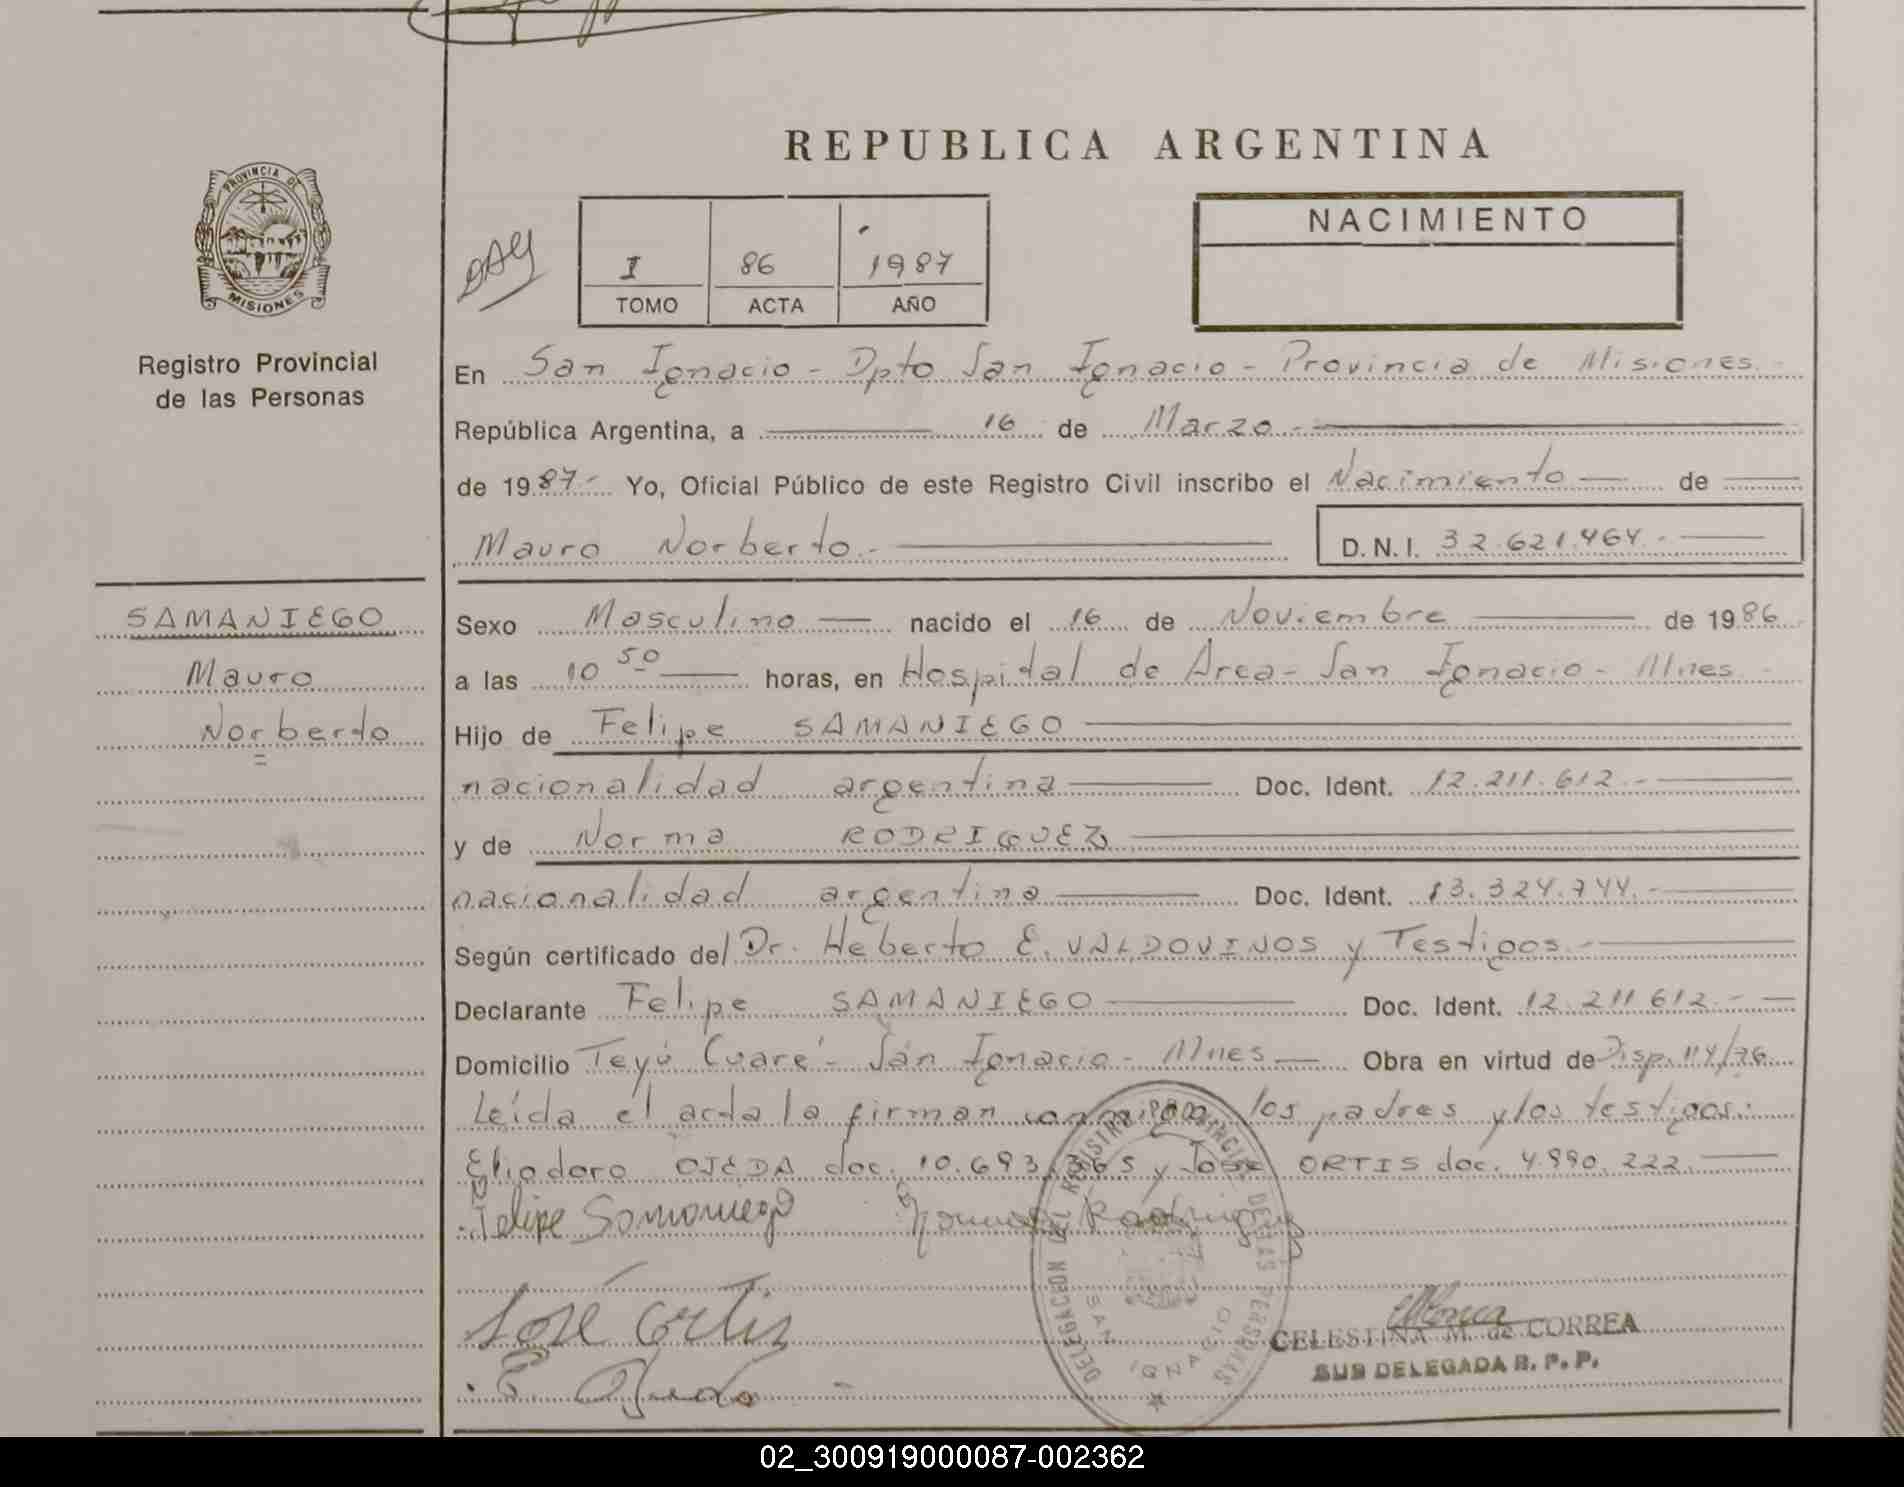 REPUBLICA ARGENTINA
PROVINCIA DE
MISIONES
Registro Provincial
de las Personas
I 86 1987
TOMO ACTA AÑO
NACIMIENTO
En San Ignacio - Dpto San Ignacio - Provincia de Misiones.-
República Argentina, a 16 de Marzo.-
de 1987- Yo, Oficial Público de este Registro Civil inscribo el Nacimiento de
Mauro Norberto.-
D.N.I. 32.621.464.-
SAMANIEGO
Mauro
Norberto
Sexo Masculino nacido el 16 de Noviembre de 1986
a las 10 50 horas, en Hospital de Area- San Ignacio- Mnes.-
Hijo de Felipe SAMANIEGO
nacionalidad argentina Doc. Ident. 12.211.612.-
y de Norma RODRIGUEZ
nacionalidad argentina Doc. Ident. 13.324.744.-
Según certificado del Dr. Heberto E. VALDOVINOS y Testigos.-
Declarante Felipe SAMANIEGO Doc. Ident. 12.211.612.-
Domicilio Teyú Cuaré- San Ignacio- Mnes Obra en virtud de Disp. 114/76
Leída el acta la firman conmigo los padres y los testigos:
Eliodoro OJEDA doc. 10.693.365 y José ORTIS doc. 4.990.222.
Felipe Samaniego Norma Rodriguez
José Ortis
E. Ojeda
DELEGACION DEL REGISTRO PROVINCIAL DE LAS PERSONAS
SAN IGNACIO
CELESTINA M. de CORREA
SUB DELEGADA R. P. P.
02_300919000087-002362